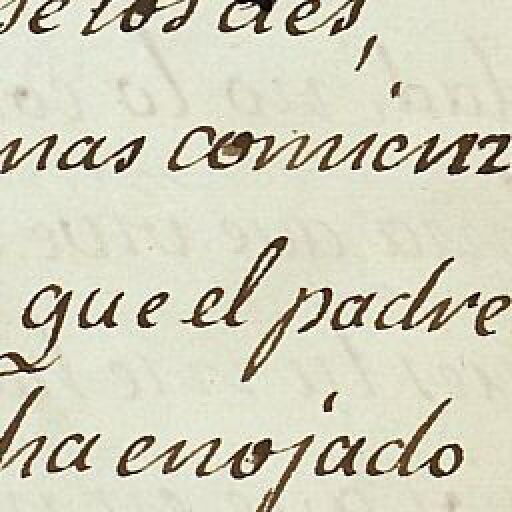 se los des,
mas comienz
que el padre
ha enojado